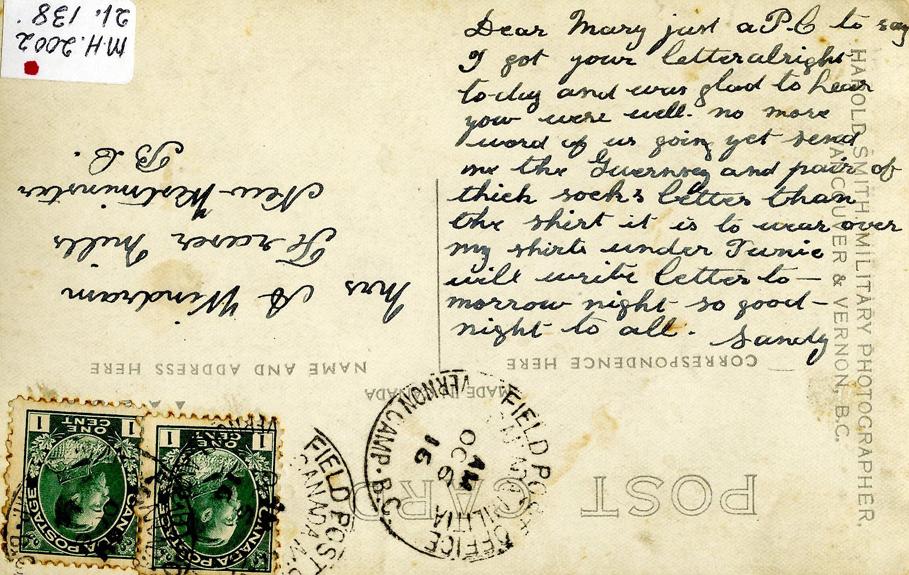 M.H. 2002
21. 138.
Dear Mary just a P.C to say
I got your letter alright
to-day and was glad to hear
you were well. no more
word of us going yet send
me the Guernsey and pair of
thick socks better than
the shirt it is to wear over
my shirts under Tunic
will write letter to-
morrow night so good-
night to all. Sandy
HAROLD SMITH, MILITARY PHOTOGRAPHER,
VANCOUVER & VERNON, B.C.
POST CARD
MADE IN CANADA
CORRESPONDENCE HERE
NAME AND ADDRESS HERE
Mrs A Windram
Fraser Mills
New Westminster
B.C.
FIELD POST OFFICE
CANADA MILITIA
AM
OC 6
16
VERNON CAMP. B.C.
FIELD POST
CANADA
CANADA POSTAGE
1 ONE CENT 1
CANADA POSTAGE
1 ONE CENT 1